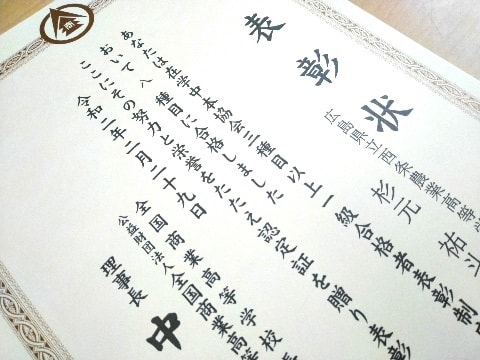 表彰状
広島県立西条農業高等学
杉元 祐斗
あなたは在学中本協会三種目以上一級合格者表彰制
おいて八種目に合格しました
ここにその努力と栄誉をたたえ認定証を贈り表彰
令和二年二月二十九日
全国商業高等学校長
公益財団法人全国商業高等
理事長 中